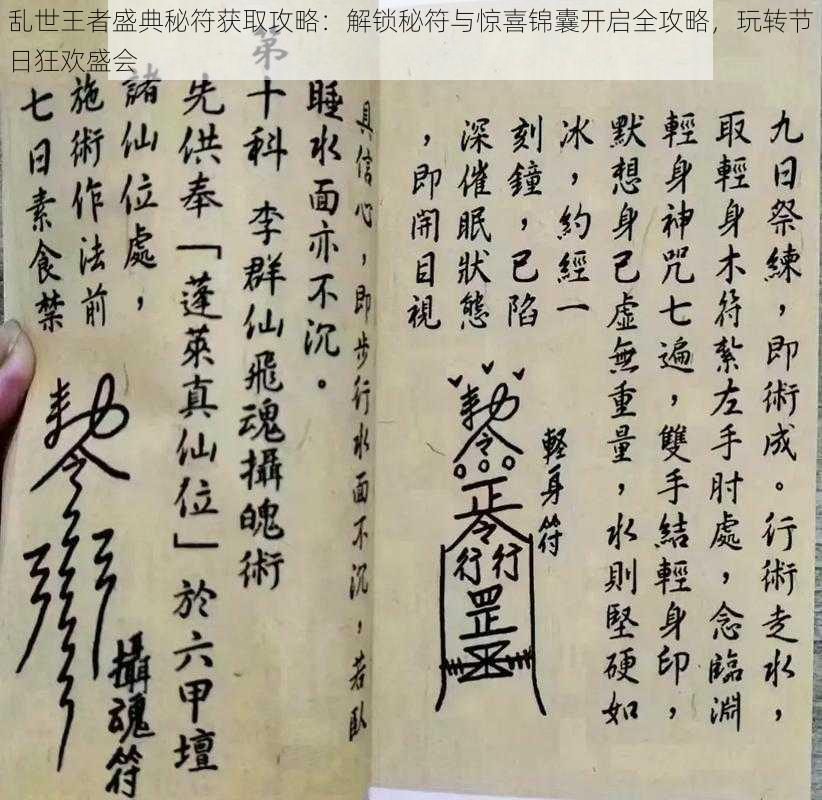 乱世王者盛典秘符获取攻略：解锁秘符与惊喜锦囊开启全攻略，玩转节
日狂欢盛会
九日祭練，即術成。行術走水，
取輕身木符紮左手肘處，念臨淵
輕身神咒七遍，雙手結輕身印，
默想身已虛無重量，水則堅硬如
冰，約經一
刻鐘，已陷
深催眠狀態
，即開目視
輕身符
勅令
正令
行行
罡
具信心，即步行水面不沉，若臥
睡水面亦不沉。
第十科 李群仙飛魂攝魄術
先供奉「蓬萊真仙位」於六甲壇
諸仙位處，
施術作法前
七日素食禁
勅令
攝魂符